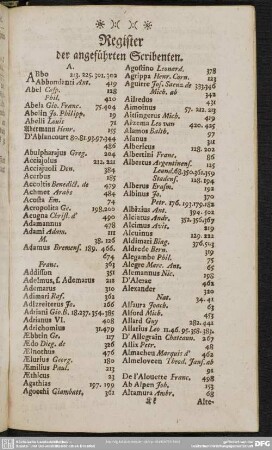 Register
der angeführten Scribenten.
A.
Abbo 213. 225. 301. 302
Abbondanti Ant. 419
Abel Casp. 118
Phil. 420
Abela Gio. Franc. 75. 404
Abelin Jo. Philipp. 19
Abelli Louis 71
Abermann Henr. 125
D'Ablancourt 80. 81. 93. 97. 344
486
Abulpharajus Greg. 204
Acciajolus 212. 221
Acciajuoli Den. 384
Acerbus 185
Accolti Benedict. de 479
Achmet Arabs 484
Acosta Em. 74
Acropolita Ge. 198. 200
Acugna Christ. d' 490
Adamannus 478
Adami Adam. 111
M. 38. 126
Adamus Bremens. 189. 466.
474
Franc. 361
Addisson 351
Adelmus, s. Ademarus 211
Ademarus 310
Adimari Raf. 362
Adlzreitterus Jo. 166
Adriani Gio. B. 18. 237. 354. 385
Adrianus VI. 408
Adrichomius 31. 479
Aebbtin Ge. 117
Ædo Dieg. de 316
Ælnothus 476
Ælurius Georg. 180
Æmilius Paul. 213
Æthicus 23
Agathias 197. 199
Agocchi Giambatt. 361
Agostino Leonard. 378
Agrippa Henr. Corn. 123
Aguirre Jos. Saenz de 333. 346
Mich. ab 342
Ailredus 431
Aimoinus 57. 212. 213
Aitsingerus Mich. 419
Aitzema Leo van 420. 425
Alamos Balth. 97
Alanus 431
Albericus 128. 202
Albertini Franc. 86
Albertus Argentinens. 125
Leand. 68. 350. 361. 359
Stadens. 128. 194
Alberus Erasm. 192
Albinus Jo. 370
Petr. 176. 193. 179. 182
Albitius Ant. 394. 502
Alciatus Andr. 352. 356. 367
Alcimus Avit. 219
Alcuinus 129. 221
Aldimari Biag. 376. 503
Aldrede Bern. 319
Alegambe Phil. 75
Alegre Marc. Ant. 65
Alemannus Nic. 198
D'Alesse 462
Alexander 320
Nat. 34. 41
Alfaura Joach. 63
Alford Mich. 453
Allard Guy 282. 441
Allatius Leo 11. 46. 95. 358. 383.
D'Allegrain Chateau. 267
Allix Petr. 48
Almacheu Marquis d' 462
Almeloveen Theod. Jans. ab
91
De l'Alouette Franc. 498
Ab Alpen Joh. 153
Altamura Ambr. 68
Alte-